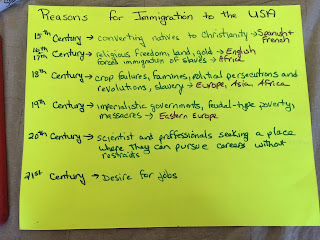 Reasons for Immigration to the USA
15th Century → converting natives to Christianity → Spanish +
French
16th
17th Century → religious freedom, land, gold → English
forced immigration of slaves → Africa
18th Century → crop failures, famines, political persecutions and
revolutions, slavery → Europe, Asia, Africa
19th Century → imperialistic governments, feudal-type poverty,
massacres → Eastern Europe
20th Century → scientist and professionals seeking a place
where they can pursue careers without
restraints
21st Century → Desire for jobs